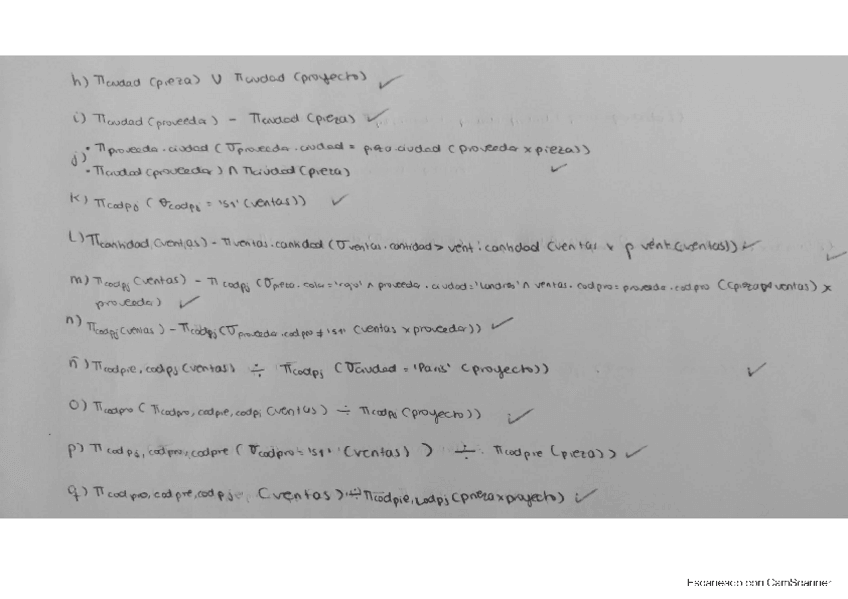 h) π ciudad (pieza) ∪ π ciudad (proyecto) ✓
i) π ciudad (proveedor) - π ciudad (pieza) ✓
j) • π proveedor.ciudad (σ proveedor.ciudad = pieza.ciudad (proveedor x pieza))
• π ciudad (proveedor) ∩ π ciudad (pieza) ✓
k) π codpj (σ codpj = 'S1' (ventas)) ✓
l) π cantidad (ventas) - π ventas.cantidad (σ ventas.cantidad > vent.cantidad (ventas x ρ vent (ventas)) ✓
m) π codpj (ventas) - π codpj (σ pieza.color = 'rojo' ∧ proveedor.ciudad = 'Londres' ∧ ventas.codpro = proveedor.codpro ((pieza ventas) x
proveedor) ✓
n) π codpj (ventas) - π codpj (σ proveedor.codpro ≠ 'S1' (ventas x proveedor)) ✓
ñ) π codpie, codpj (ventas) ÷ π codpj (σ ciudad = 'Paris' (proyecto)) ✓
o) π codpro (π codpro, codpie, codpj (ventas) ÷ π codpj (proyecto)) ✓
p) π codpj, codpro, codpre (σ codpro = 'S1' (ventas) ) ÷ π codpie (pieza)) ✓
q) π codpro, codpre, codpj (ventas) ÷ π codpie, codpj (pieza x proyecto) ✓
Escaneado con CamScanner